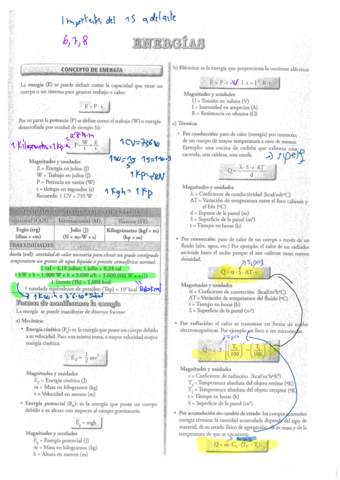 Importantes del 15 adelante
6,7,8
ENERGÍAS
CONCEPTO DE ENERGÍA
La energía (E) se puede definir como la capacidad que tiene un cuerpo o un sistema para generar trabajo o calor:
E = P · t
Por su parte la potencia (P) se define como el trabajo (W) o energía desarrollada por unidad de tiempo (t):
Magnitudes y unidades
E = Energía en julios (J)
W = Trabajo en julios (J)
P = Potencia en vatios (W)
t = tiempo en segundos (s)
Recuerda: 1 CV = 735 W
1CV=735W
1Kgh = 1KP
Ergio (erg)
(dina × cm)
Julio (J)
(N = m×W × s)
Kilográmetro (kgf × m)
(kp × m)
OTRAS UNIDADES
1 cal = 4,18 julios; 1 julio = 0,24 cal
1 kW × h = 1.000 W × h = 3.600 s/h = 3.600.000 W × s (J)
1 termia (Th) = 1.000 kcal
1 tonelada equivalente de petróleo (Tep) = 10⁷ kcal
Formas de manifestarse la energía
La energía se puede manifestar de diversas formas:
a) Mecánica:
• Energía cinética (Ec): es la energía que posee un cuerpo debido a su velocidad. Para una misma masa, a mayor velocidad mayor energía cinética.
Ec = 1/2 mv²
Magnitudes y unidades
Ec = Energía cinética (J)
m = Masa en kilogramos (kg)
v = Velocidad en metros (m)
• Energía potencial (Ep): es la energía que posee un cuerpo debido a su altura con respecto al campo gravitatorio.
Ep = mgh
Magnitudes y unidades
Ep = Energía potencial (J)
m = Masa en kilogramos (kg)
h = Altura en metros (m)
b) Eléctrica: es la energía que proporciona la corriente eléctrica:
Magnitudes y unidades
U = Tensión en voltios (V)
I = Intensidad en amperios (A)
R = Resistencia en ohmios (Ω)
c) Térmica:
• Por conducción: paso de calor (energía) por contacto, de un cuerpo de mayor temperatura a otro de menor. Ejemplo: una cocina de carbón que calienta una cacerola, una caldera, una tanda.
Magnitudes y unidades
λ = Coeficiente de conductividad (kcal/mhºC)
ΔT = Variación de temperatura entre el foro caliente y el frío (ºC)
d = Espesor de la pared (m)
t = Tiempo en horas (h)
S = Superficie de la pared (m²)
• Por convección: paso de calor de un cuerpo a través de un fluido (aire, agua, etc.). Por ejemplo: el calor de un radiador asciende hasta el techo porque el aire caliente tiene menor densidad.
Q = α · S · ΔT · t
Magnitudes y unidades
α = Coeficiente de convección (kcal/m²hºC)
ΔT = Variación de temperatura del fluido (ºC)
t = Tiempo en horas (h)
S = Superficie de la pared (m²)
• Por radiación: el calor se transmite en forma de ondas electromagnéticas. Por ejemplo un foco o un microondas.
Magnitudes y unidades
c = Coeficiente de Radiación (kcal/m²hºK⁴)
T₂ = Temperatura absoluta del objeto emisor (ºK)
T₁ = Temperatura absoluta del objeto receptor (ºK)
t = Tiempo en horas (h)
S = Superficie de la pared (m²)
• Por acumulación sin cambio de estado: los cuerpos acumulan energía térmica; la cantidad acumulada depende del tipo de material, de su estado físico de agregación, de su masa y de la temperatura de que se encuentre.